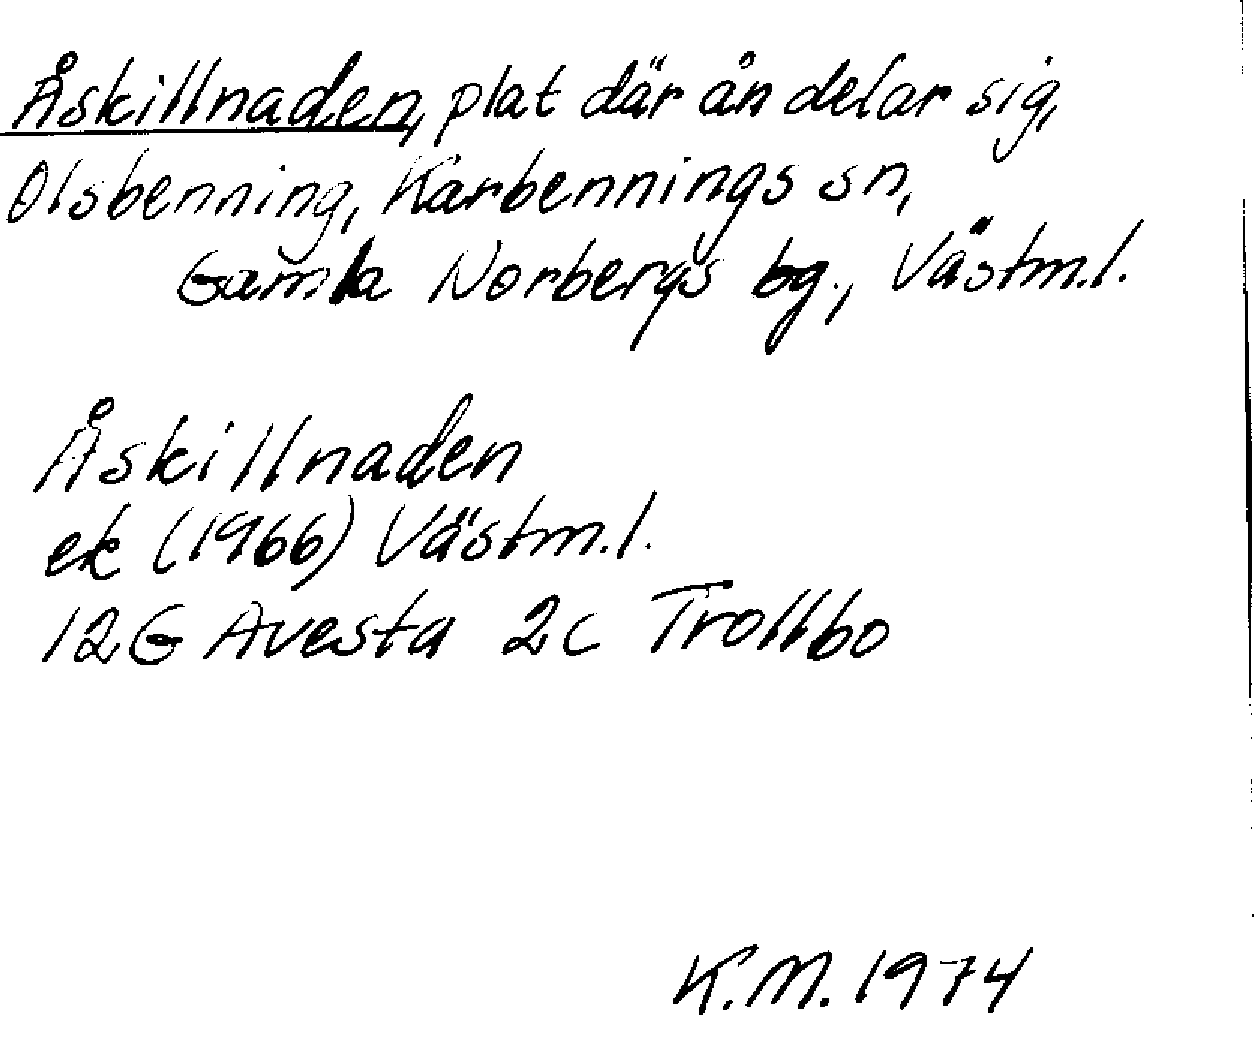 Åskillnaden, plat där ån delar sig,
Olsbenning, Karbennings sn,
Gamla Norbergs bg., Västm.l.
Åskillnaden
ek (1966) Västm.l.
12G Avesta 2c Trollbo
K.M. 1974